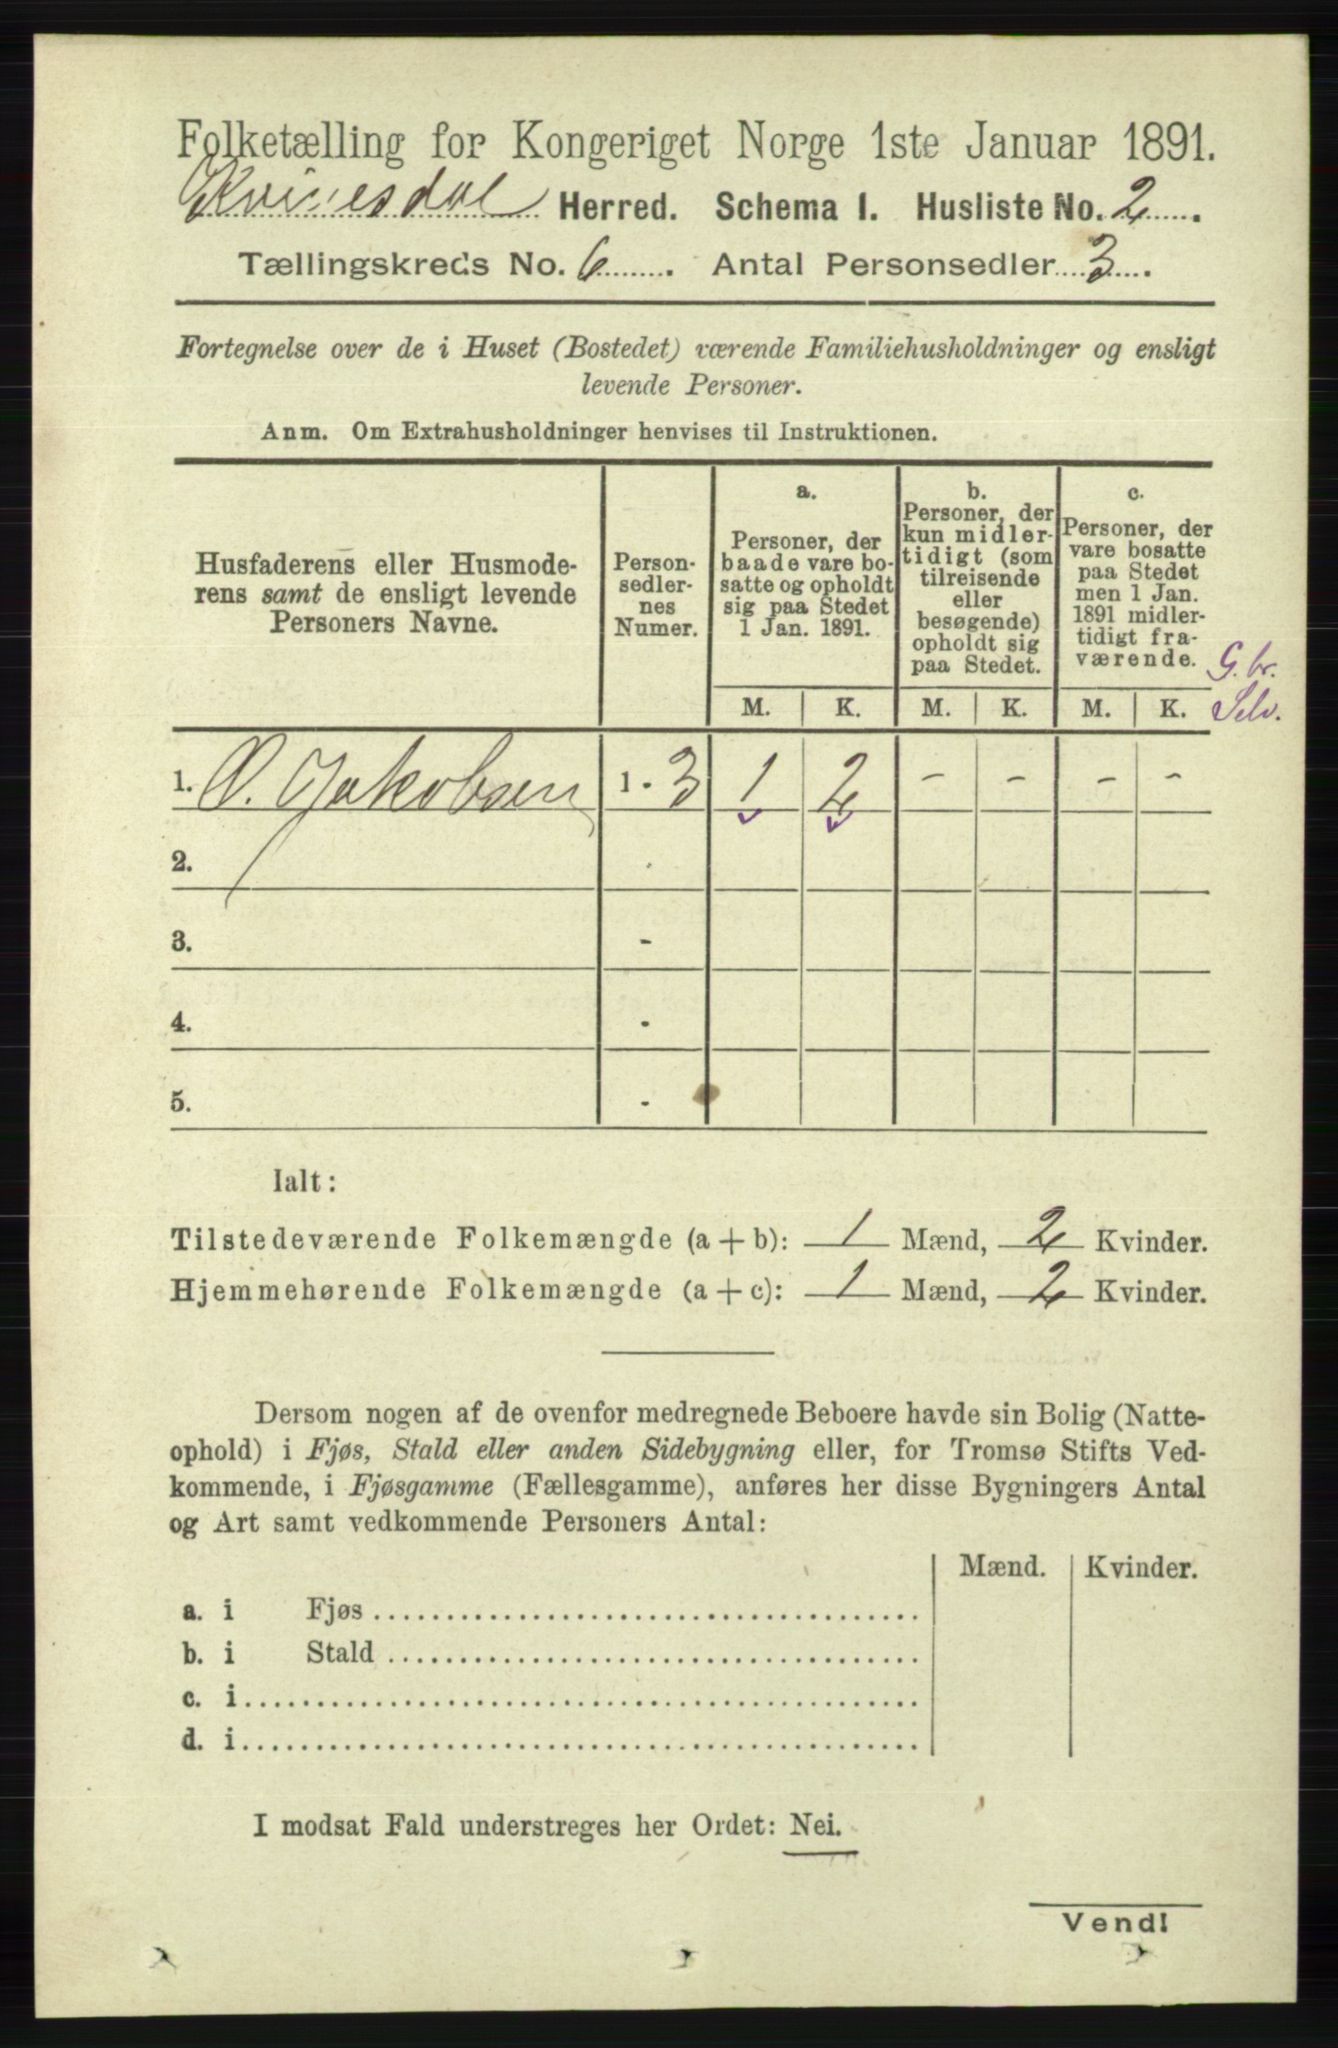 Folketælling for Kongeriget Norge 1ste Januar 1891.
Kvinesdal Herred. Schema I. Husliste No. 2.
Tællingskreds No. 6. Antal Personsedler 3.
Fortegnelse over de i Huset (Bostedet) værende Familiehusholdninger og ensligt
levende Personer.
Anm. Om Extrahusholdninger henvises til Instruktionen.
Husfaderens eller Husmode-
rens samt de ensligt levende
Personers Navne.
Person-
sedler-
nes
Numer.
a.
Personer, der
baade vare bo-
satte og opholdt
sig paa Stedet
1 Jan. 1891.
b.
Personer, der
kun midler-
tidigt (som
tilreisende
eller
besøgende)
opholdt sig
paa Stedet.
c.
Personer, der
vare bosatte
paa Stedet
men 1 Jan.
1891 midler-
tidigt fra-
værende.
G.br.
Selv.
M. K. M. K. M. K.
1. O. Jakobsen 1 - 3 1 2 - - - -
2. -
3. -
4. -
5. -
Ialt:
Tilstedeværende Folkemængde (a + b): 1 Mænd, 2 Kvinder.
Hjemmehørende Folkemængde (a + c): 1 Mænd, 2 Kvinder.
Dersom nogen af de ovenfor medregnede Beboere havde sin Bolig (Natte-
ophold) i Fjøs, Stald eller anden Sidebygning eller, for Tromsø Stifts Ved-
kommende, i Fjøsgamme (Fællesgamme), anføres her disse Bygningers Antal
og Art samt vedkommende Personers Antal:
Mænd. Kvinder.
a. i Fjøs
b. i Stald
c. i
d. i
I modsat Fald understreges her Ordet: Nei.
Vend!